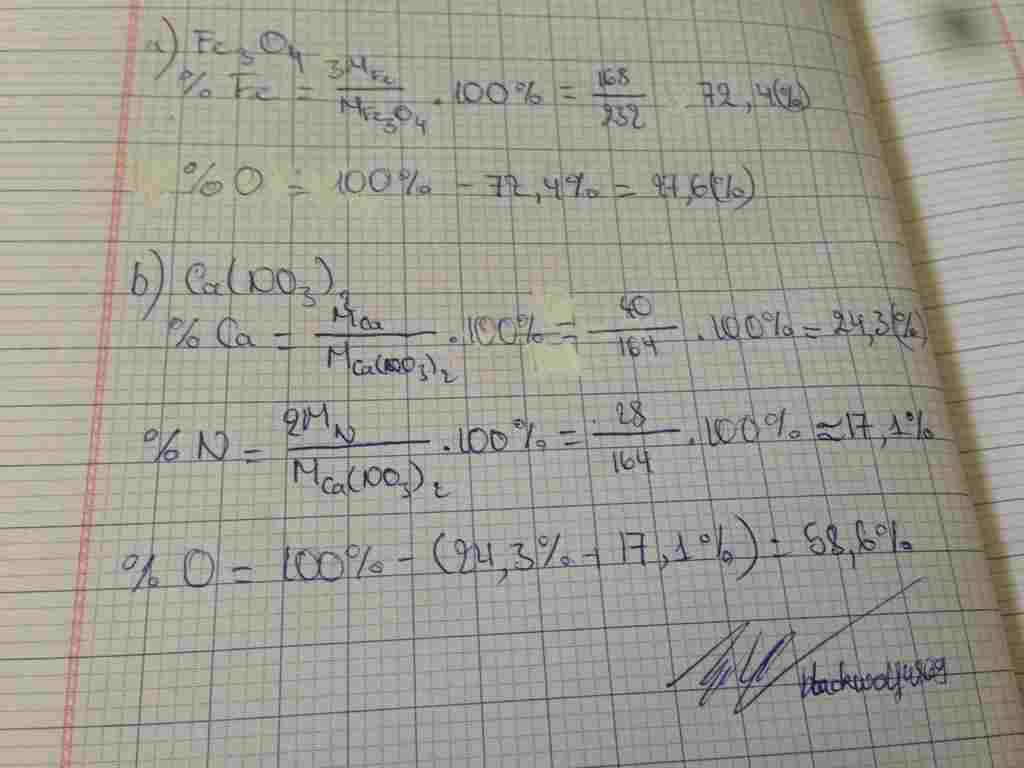 a) Fe₃O₄
% Fe = 3M_Fe / M_Fe₃O₄ . 100% = 168 / 232 72,4(%)
% O = 100% - 72,4% = 27,6(%)
b) Ca(NO₃)₂
% Ca = M_Ca / M_Ca(NO₃)₂ . 100% = 40 / 164 . 100% = 24,3(%)
% N = 2M_N / M_Ca(NO₃)₂ . 100% = 28 / 164 . 100% ≈ 17,1%
% O = 100% - (24,3% + 17,1%) = 58,6%